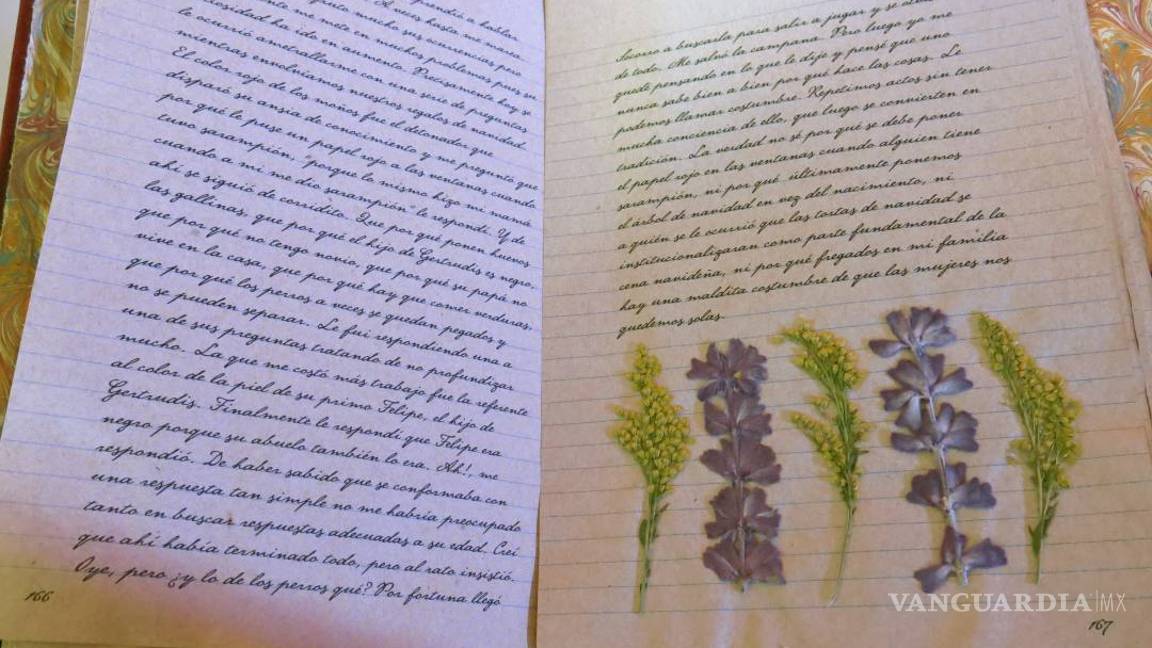 aprendió a hablar
disfruto mucho de sus ocurrencias pero
A veces hasta me marea
me mete en muchos problemas, pues su
curiosidad ha ido en aumento. Precisamente hoy se
le ocurrió ametrallarme con una serie de preguntas
mientras envolvíamos nuestros regalos de navidad.
El color rojo de los moños fue el detonador que
disparó su ansia de conocimiento y me preguntó que
por qué le puse un papel rojo a las ventanas cuando
tuvo sarampión, "porque lo mismo hizo mi mamá
cuando a mí me dio sarampión" le respondí. Y de
ahí se siguió de corridito. Que por qué ponen huevos
las gallinas, que por qué el hijo de Gertrudis es negro,
que por qué no tengo novio, que por qué su papá no
vive en la casa, que por qué hay que comer verduras,
que por qué los perros a veces se quedan pegados y
no se pueden separar. Le fui respondiendo una a
una de sus preguntas tratando de no profundizar
mucho. La que me costó más trabajo fue la referente
al color de la piel de su primo Felipe, el hijo de
Gertrudis. Finalmente le respondí que Felipe era
negro porque su abuelo también lo era. Ah!, me
respondió. De haber sabido que se conformaba con
una respuesta tan simple no me habría preocupado
tanto en buscar respuestas adecuadas a su edad. Creí
que ahí había terminado todo, pero al rato insistió.
Oye, pero ¿y lo de los perros qué? Por fortuna llegó
166
Socorro a buscarla para salir a jugar y se olvidó
de todo. Me salvó la campana. Pero luego ya me
quedé pensando en lo que le dije y pensé que uno
nunca sabe bien a bien por qué hace las cosas. Le
podemos llamar costumbre. Repetimos actos sin tener
mucha conciencia de ello, que luego se convierten en
tradición. La verdad no sé por qué se debe poner
el papel rojo en las ventanas cuando alguien tiene
sarampión, ni por qué últimamente ponemos
el árbol de navidad en vez del nacimiento, ni
a quién se le ocurrió que las tortas de navidad se
institucionalizaran como parte fundamental de la
cena navideña, ni por qué fregados en mi familia
hay una maldita costumbre de que las mujeres nos
quedemos solas.
167
VANGUARDIA|MX